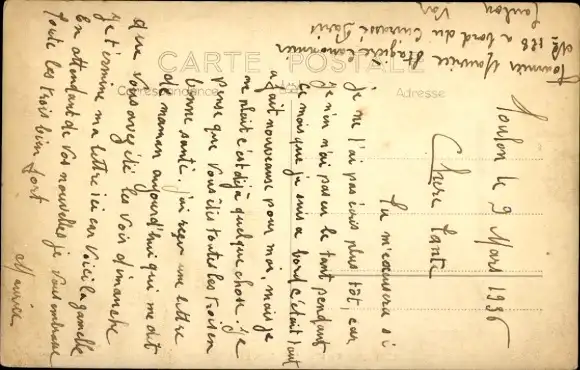 CARTE POSTALE
Correspondance
Adresse
Toulon le 9 Mars 1936
Chère tante
Tu m'excusera si
je ne l'ai pas écris plus tôt, car
je n'en n'ai pas eu le tant pendant
ce mois que je suis a bord c'était tout
a fait nouveause pour moi, mais je
me plait c'est déjà quelque chose. Je
pense que vous êtes toutes les trois en
bonne santé. j'ai reçu une lettre
de maman aujourd'hui qui me dit
que vous avez été les voir dimanche
je termine ma lettre ici car voici la gamelle
En attendant de vos nouvelles je vous embrasse
toute les trois bien fort
Maurice
Maurice
Stagière canonnier
No 128 a bord du Cuirassé Paris
Toulon Var